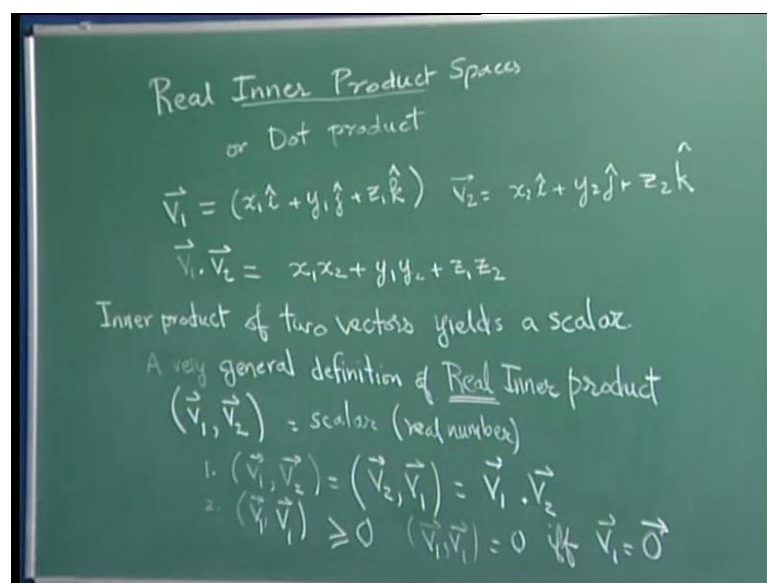 Real Inner Product Spaces
or Dot product
V⃗₁ = (x₁î + y₁ĵ + z₁k̂) V⃗₂ = x₂î + y₂ĵ + z₂k̂
V⃗₁ . V⃗₂ = x₁x₂ + y₁y₂ + z₁z₂
Inner product of two vectors yields a scalar.
A very general definition of Real Inner product
(V⃗₁, V⃗₂) = scalar (real number)
1. (V⃗₁, V⃗₂) = (V⃗₂, V⃗₁) = V⃗₁ . V⃗₂
2. (V⃗₁, V⃗₁) ≥ 0 (V⃗₁, V⃗₁) = 0 iff V⃗₁ = 0⃗